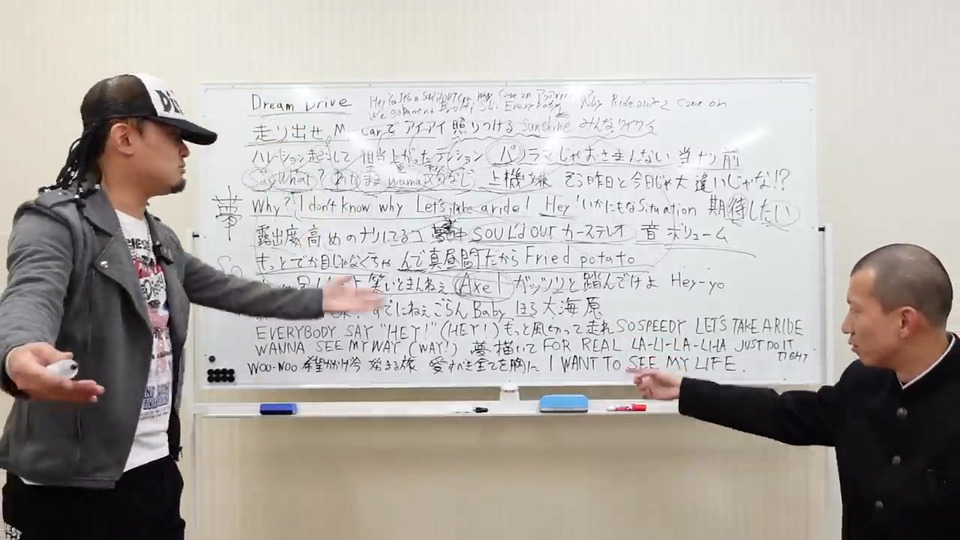 Dream Drive Hey Yo It's a Everybody Why Ride out 2 Come on
走り出せ My carで アイアイ 照りつける Sunshine みんなワイワイ
ハレーション起こして 相当上がったテンション パノラマじゃおさまんない 当たり前
Say What? あるがまま wanna 上機嫌 そう昨日と今日じゃ大違いじゃな!?
夢 Why? I don't know why Let's take a ride! Hey いかにもなSituation 期待したい
露出度高めのナリしてるコ 夢中 SOUL'd OUT カーステレオ 音ボリューム
もっとでか目じゃなくちゃ んで真昼間だからFried potato
笑いとまんねえ Axel ガッツリと踏んでけよ Hey-yo
ごらん Baby ほら大海原
EVERYBODY SAY "HEY!" (HEY!) もっと風切って走れ SO SPEEDY LET'S TAKE A RIDE
WANNA SEE MY WAY (WAY!) 夢描いて FOR REAL LA-LI-LA-LIHA JUST DO IT
TIGHT
WOO-WOO 希望かけ今 始まる旅 愛すべき全てを胸に I WANT TO SEE MY LIFE.